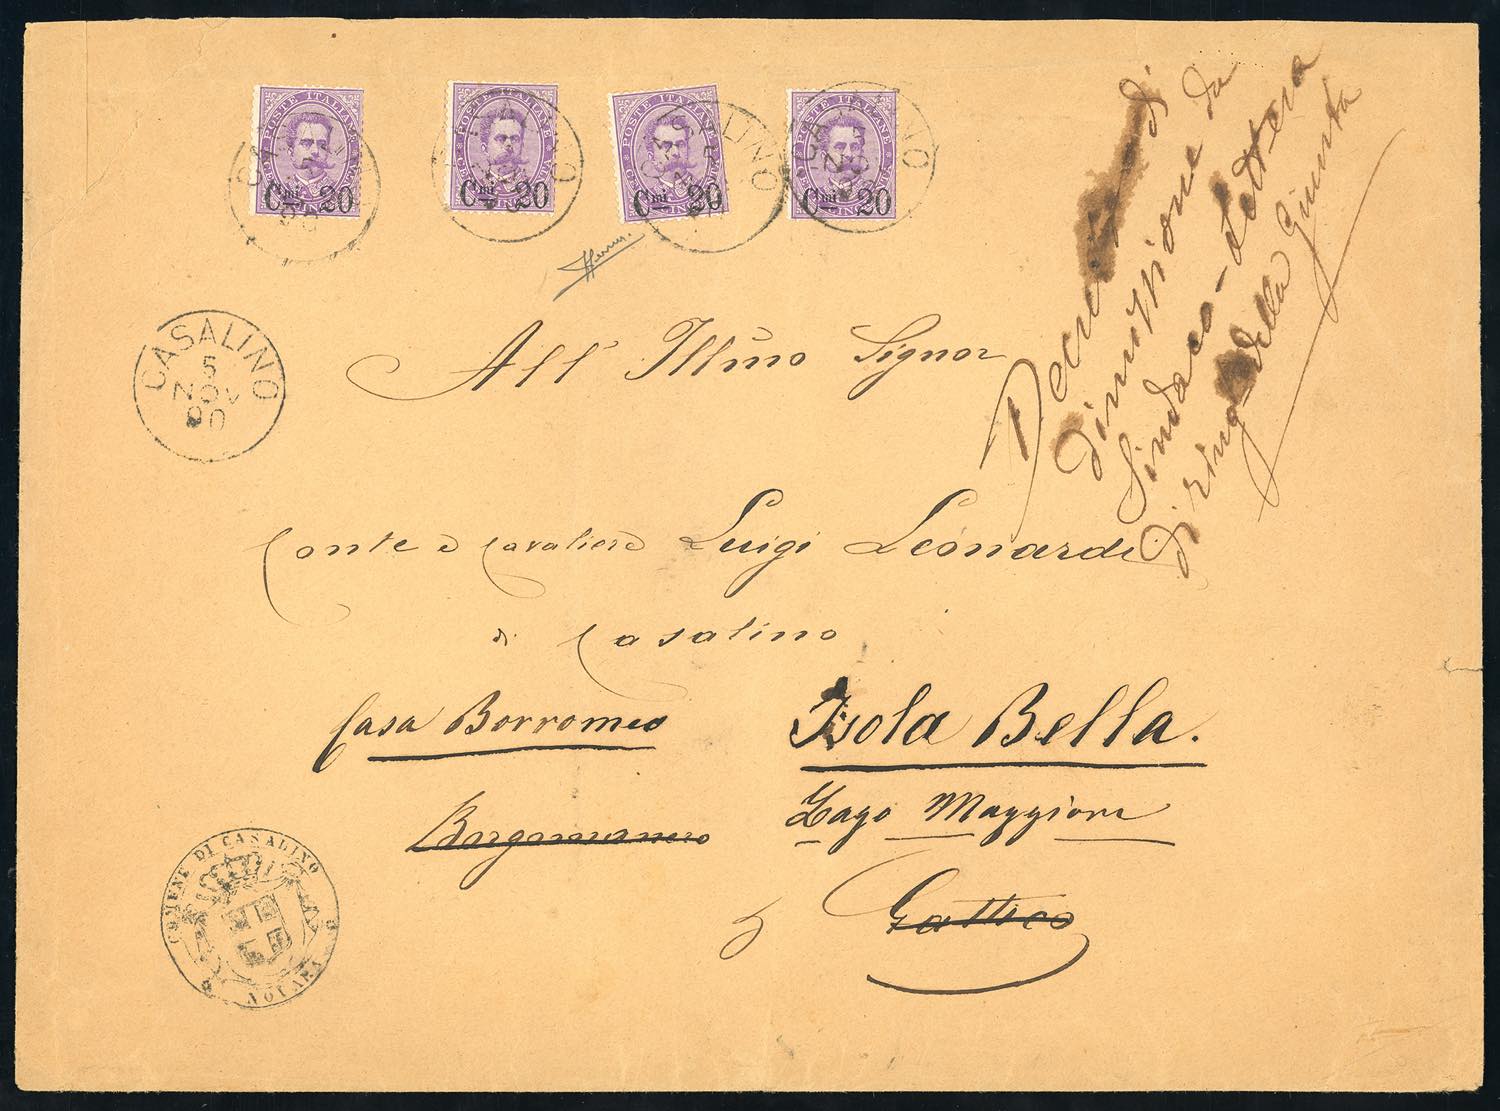 POSTE ITALIANE
Cmi 20
POSTE ITALIANE
Cmi 20
POSTE ITALIANE
Cmi 20
POSTE ITALIANE
Cmi 20
CASALINO
5
NOV
90
All' Illmo Signor
Conte e Cavaliere Luigi Leonardi
di Casalino
Casa Borromeo
Isola Bella.
Borgomanero
Lago Maggiore
Gattico
Decreto di
dimissione da
Sindaco - Lettera
di ring. della Giunta
COMUNE DI CASALINO
NOVARA